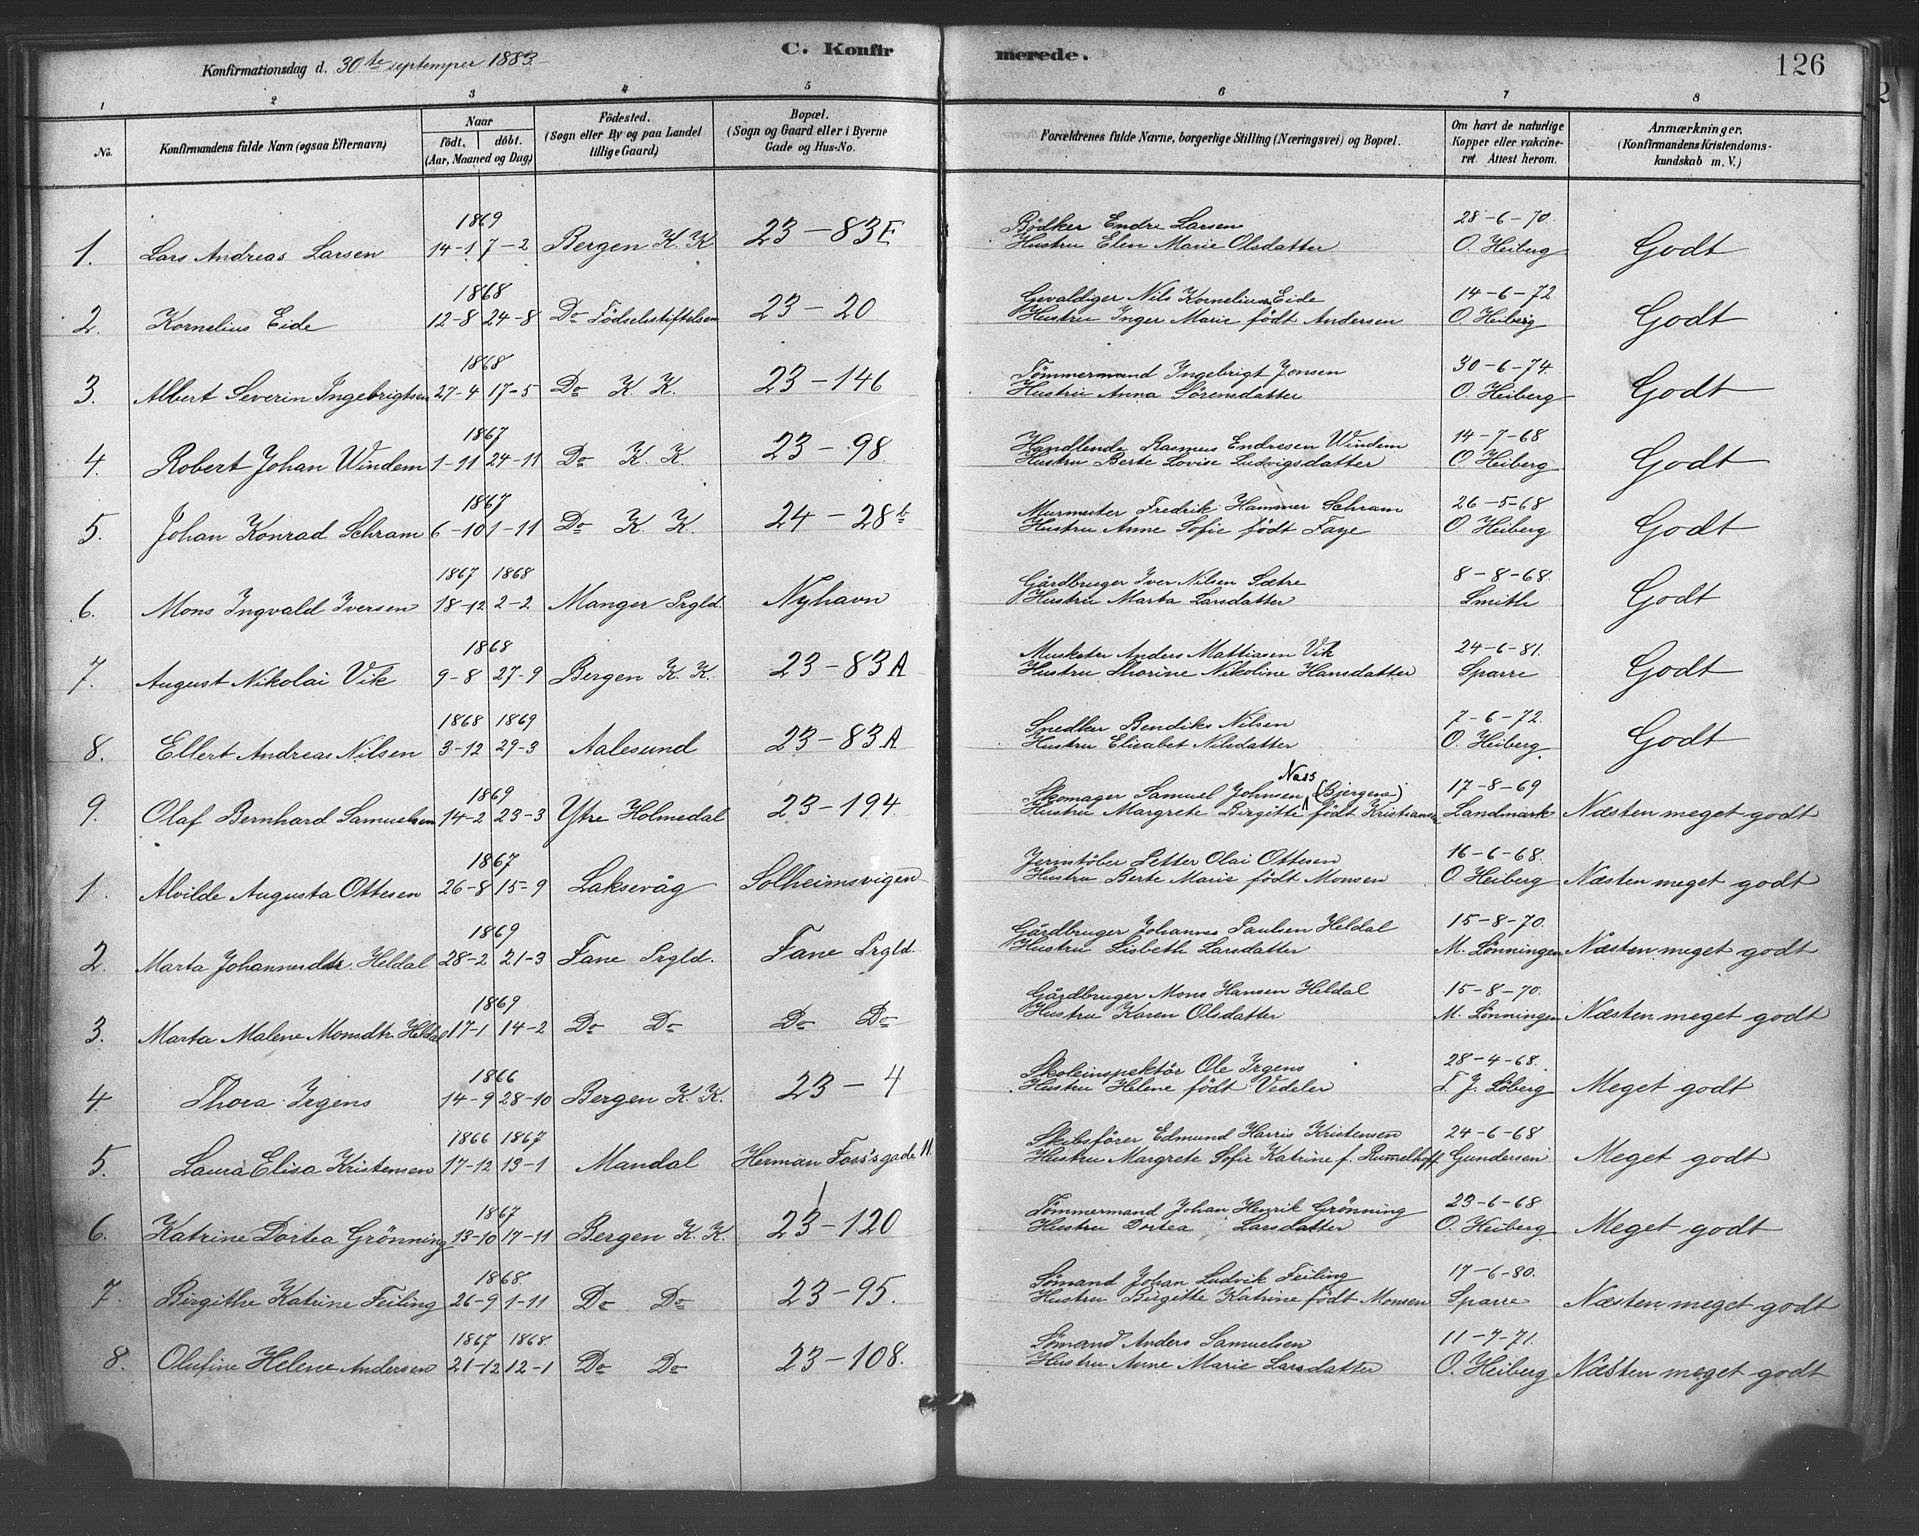 Konfirmationsdag d. 30te septemper 1883.
C. Konfirmerede.
126
1 2 3 4 5 6 7 8
No.
Konfirmandens fulde Navn (ogsaa Efternavn)
Naar
födt. döbt.
(Aar, Maaned og Dag)
Födested.
(Sogn eller By og paa Landet
tillige Gaard)
Bopæl.
(Sogn og Gaard eller i Byerne
Gade og Hus-No.
Forældrenes fulde Navne, borgerlige Stilling (Næringsvei) og Bopæl.
Om havt de naturlige
Kopper eller vakcine-
ret. Attest herom.
Anmærkninger.
(Konfirmandens Kristendoms-
kundskab m. V.)
1869 Bödker Endre Larsen 28-6-70.
1. Lars Andreas Larsen 14-1 7-2 Bergen K. K. 23-83E Hustru Elen Marie Olsdatter O. Heiberg Godt
1868 Givaldiger Nils Kornelius Eide 14-6-72
2. Kornelius Eide 12-8 24-8 Do Födselsstiftelsen 23-20 Hustru Inger Marie födt Andersen O. Heiberg Godt
1868 Tömmermand Ingebrigt Jonsen 30-6-74.
3. Albert Severin Ingebrigtsen 27-4 17-5 Do K. K. 23-146 Hustru Anna Sörensdatter O. Heiberg Godt
1867 Handlende Rasmus Endresen Windem 14-7-68
4. Robert Johan Windem 1-11 24-11 Do K. K. 23-98 Hustru Berte Lovise Ludvigsdatter O. Heiberg Godt
1867 Murmester Fredrik Hammer Schram 26-5-68
5. Johan Konrad Schram 6-10 1-11 Do K. K. 24-28b Hustru Anne Sofie födt Faye O. Heiberg Godt
1867 1868 Gårdbruger Iver Nilsen Sætre 8-8-68.
6. Mons Ingvald Iversen 18-12 2-2 Manger Prgld Nyhavn Hustru Marta Larsdatter Smith Godt
1868 Musketer Anders Mattiasen Vik 24-6-81.
7. August Nikolai Vik 9-8 27-9 Bergen K. K. 23-83A Hustru Thorine Nikoline Hansdatter Sparre Godt
1868 1869 Snedker Bendiks Nilsen 7-6-72.
8. Ellert Andreas Nilsen 3-12 29-3 Aalesund 23-83A Hustru Elisabet Nilsdatter O. Heiberg Godt
1869 Skomager Samuel Johnsen Næss (Bjergene) 17-8-69
9. Olaf Bernhard Samuelsen 14-2 23-3 Ytre Holmedal 23-194 Hustru Margrete Birgitte födt Kristiansen Landmark Næsten meget godt
1867 Jernstöber Petter Olai Ottesen 16-6-68.
1. Alvilde Augusta Ottesen 26-8 15-9 Laksevåg Solheimsvigen Hustru Berte Marie födt Monsen O. Heiberg Næsten meget godt
1869 Gårdbruger Johannes Paulsen Heldal 15-8-70.
2. Marta Johannesdtr Heldal 28-2 21-3 Fane Prgld. Fane Prgld. Hustru Lisbeth Larsdatter M. Lönningen Næsten meget godt
1869 Gårdbruger Mons Hansen Heldal 15-8-70.
3. Marta Malene Monsdtr Heldal 17-1 14-2 Do Do Do Do Hustru Karen Olsdatter M. Lönningen Næsten meget godt
1866 Skoleinspektör Ole Irgens 28-4-68.
4. Thora Irgens 14-9 28-10 Bergen K. K. 23-4 Hustru Helene födt Vedeler F. J. Löberg Meget godt
1866 1867 Skibsförer Edmund Harris Kristensen 24-6-68
5. Laura Elisa Kristensen 17-12 13-1 Mandal Herman Foss's gade 11 Hustru Margrete Sofie Katrine f. Rumelhoff Gundersen Meget godt
1867 Tömmermand Johan Henrik Grönning 23-6-68
6. Katrine Dortea Grönning 13-10 17-11 Bergen K. K. 23-120 Hustru Dortea Larsdatter O. Heiberg. Meget godt
1868 Sömand Johan Ludvik Feiling 17-6-80.
7. Birgithe Katrine Feiling 26-9 1-11 Do Do 23-95. Hustru Birgitte Katrine födt Monsen Sparre Næsten meget godt
1867 1868. Sömand Anders Samuelsen 11-7-71.
8. Olufine Helene Andersen 21-12 12-1 Do Do 23-108. Hustru Anne Marie Larsdatter O. Heiberg Næsten meget godt